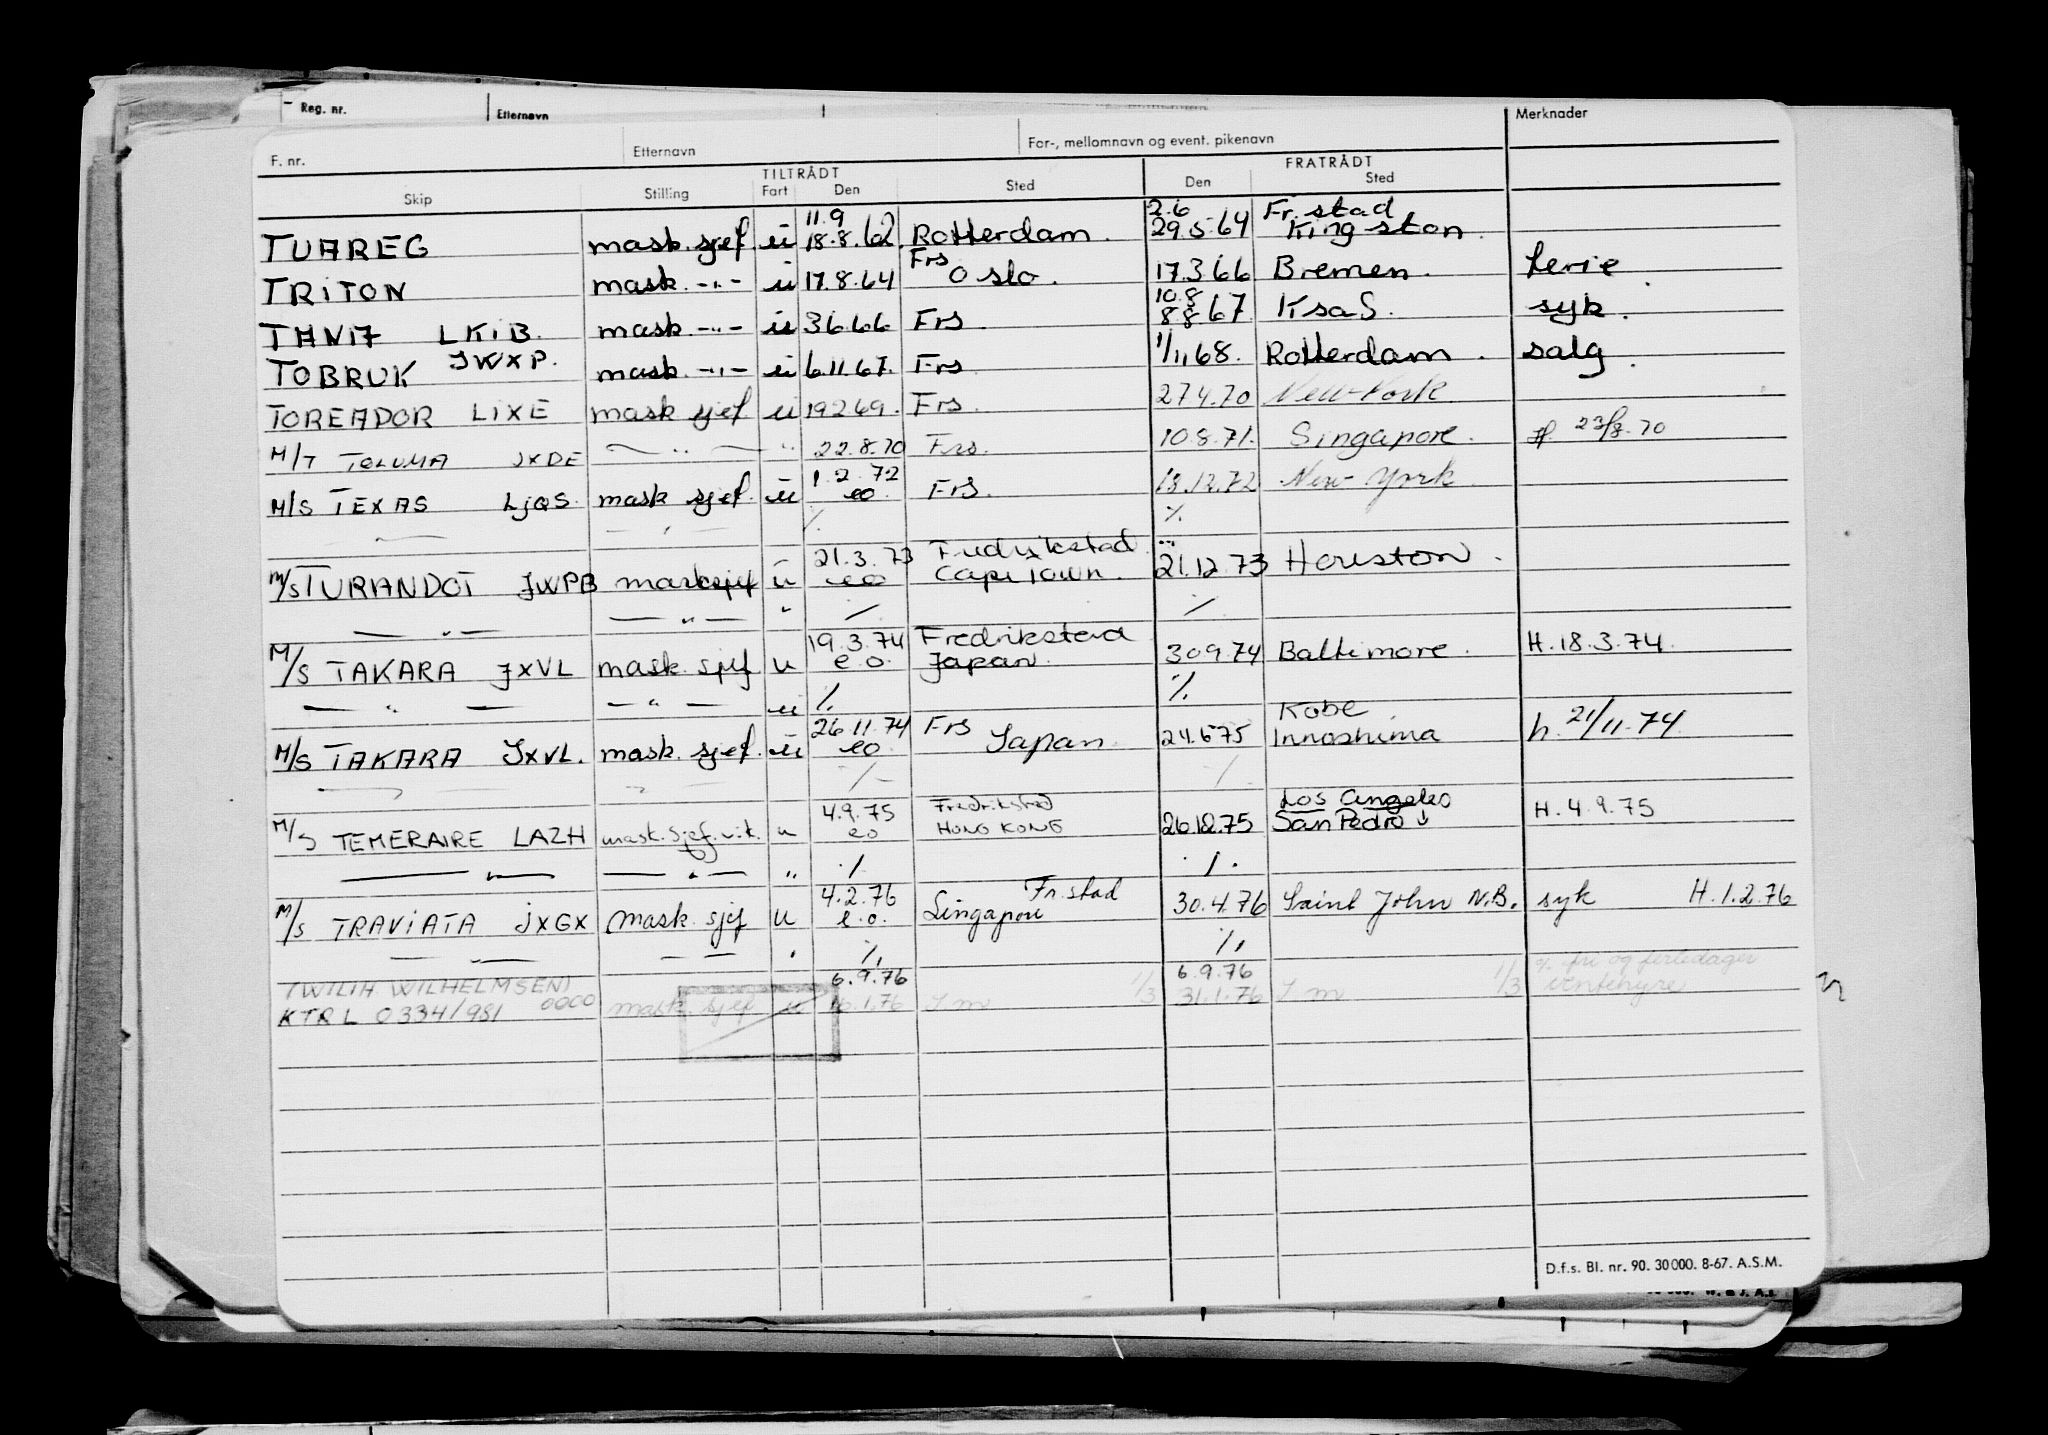 Reg. nr. Etternavn
F. nr. Etternavn For-, mellomnavn og event. pikenavn Merknader
TILTRÅDT FRATRÅDT
Skip Stilling Fart Den Sted Den Sted
11.9 2.6 Fr.stad
TUAREG mask. sjef. u 18.8.62. Rotterdam. 29.5.64 Kingston.
Frs
TRITON mask. -"- u 17.8.64 Oslo. 17.3.66 Bremen. ferie.
10.8
LKIB. mask. -"- u 3.6.66 Frs. 8.8.67 KsaS. syk.
TOBRUK JWXP. mask. -"- u 6.11.67. Frs. 1/11.68. Rotterdam. salg.
TOREADOR LIXE mask sjef u 19.2.69. Frs. 27.4.70 New-York
M/T TOLUMA JXDE — " — " 22.8.70 Frs. 10.8.71. Singapore. 70
1.2.72
M/S TEXAS LJQS. mask sjef. u eo. Frs. 18.12.72 New-York
— " — " ./. ./.
21.3.73 Fredrikstad
M/S TURANDOT JWPB masksjef u eo Cape Town. 21.12.73 Houston.
— " — — " — " ./. ./.
19.3.74 Fredrikstad
M/S TAKARA JXVL mask. sjef u e.o. Japan. 30.9.74 Baltimore. H. 18.3.74.
— " — — " — u ./. ./.
26.11.74 Frs Kobe
M/S TAKARA JXVL. mask. sjef. u eo Japan. 24.6.75 Innoshima h. 21/11.74.
— " — " -/- ./.
4.9.75 Fredrikstad Los Angeles
M/S TEMERAIRE LAZH mask.sjef.vik. u eo HONG KONG 26.12.75 San Pedro H. 4.9.75
— " — — " — " ./. ./.
4.2.76 Fr.stad
M/S TRAVIATA JXGX mask. sjef u e.o. Singapore 30.4.76 Saint John N.B. syk H.1.2.76
— " — — " ./. ./.
(WILH. WILHELMSEN) 6.9.76 6.9.76 fri og feriedager
KTRL 0334/981 0000 mask. sjef u 1.76 1/3 31.1.76 1/3 ventehyre
D.f.s. Bl. nr. 90. 30000. 8-67. A.S.M.